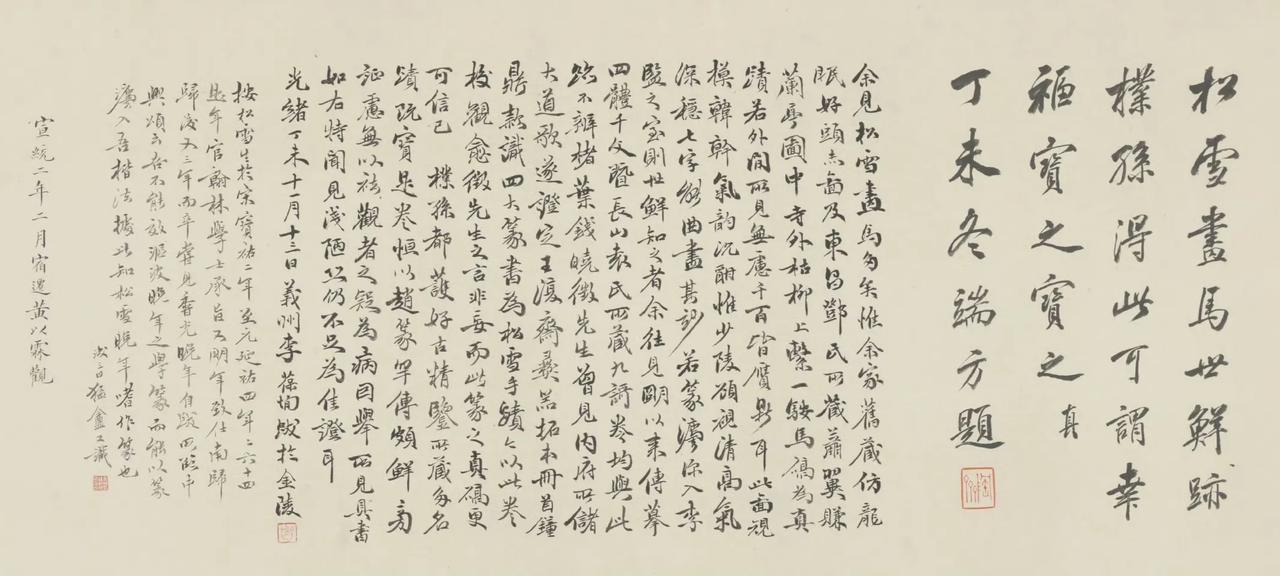 松雪畫馬世鮮跡
檏孫得此可謂幸
福寶之寶之真
丁未冬端方題
余見松雪畫馬多矣惟余家舊藏仿龍
眠好頭赤圖及東昌鄧氏所藏蕭翼賺
蘭亭圖中寺外枯柳上繫一駿馬確為真
蹟若外間所見無慮千百皆贋鼎耳此圖規
橅韓幹氣韵沉酣惟少陵顧視清高氣
深穩七字能曲盡其妙若篆瀋深入李
監之室則世鮮知之者余往見明以來傳摹
四體千文暨長山袁氏所藏九謌卷均與此
不辨楮葉錢曉徵先生曾見内府所儲
大道歌遂證定王復齋彝器拓本冊首鐘
鼎款識四大篆書為松雪手蹟今以此卷
校觀愈徵先生之言非妄而此篆之真確更
可信已 檏孫都護好古精鑒所藏多名
蹟既寶是卷恒以趙篆罕傳頗鮮旁
証慮無以祛觀者之疑為病因舉所見具書
如右特聞見淺陋恐仍不足為佳證耳
光緒丁未十一月十三日義州李葆恂跋於金陵
按松雪生於宋寶祐二年至元延祐四年六十四
是年官翰林學士承旨又明年致仕南歸
歸後又三年而卒嘗見香光晚年自跋所臨
興頌云吾不能效漚波晚年之學篆而能以篆
瀋入吾楷法據此知松雪晚年嗜作篆也
宣統二年二月宿遷黃以霖觀